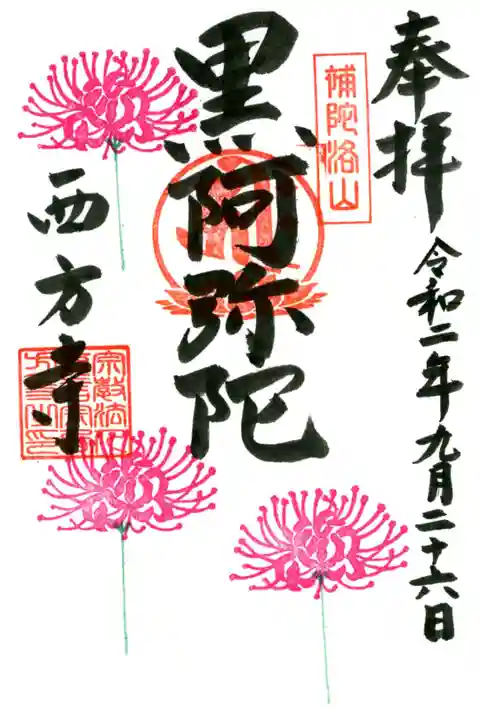 奉拝
令和二年九月二十六日
補陀洛山
黒阿弥陀
西方寺